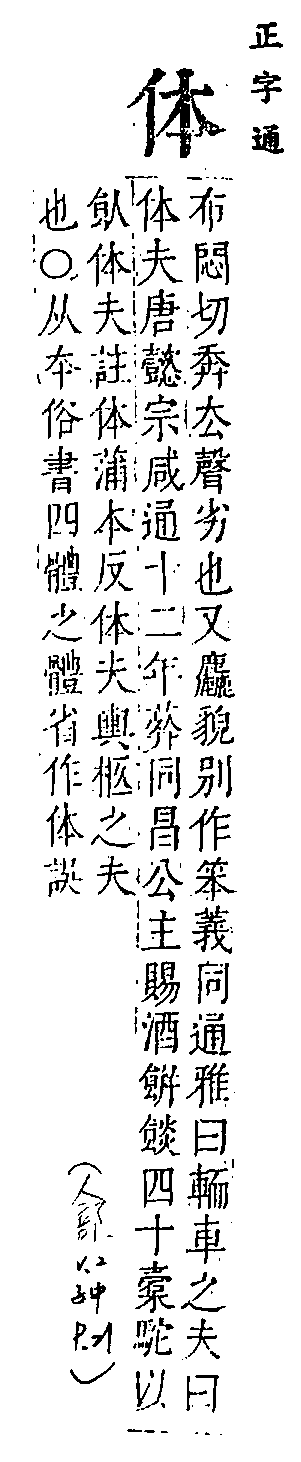 正字通
体
布悶切奔厺聲劣也又麤貌別作笨義同通雅曰輀車之夫曰
体夫唐懿宗咸通十二年葬同昌公主賜酒餅餤四十橐駝以
飤体夫註体蒲本反体夫輿柩之夫
也〇从本俗書四體之體省作体誤
(人部